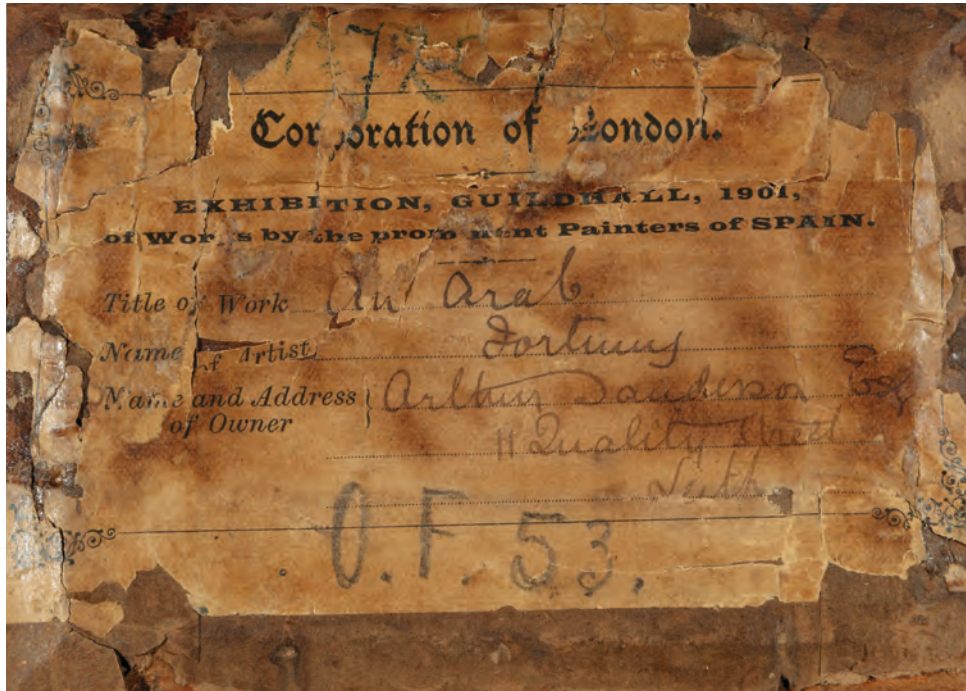 Corporation of London.
EXHIBITION, GUILDHALL, 1901,
of Works by the prominent Painters of SPAIN.
Title of Work An Arab.
Name of Artist, Fortuny
Name and Address of Owner } Arthur Sanderson Esq
11 Quality Street
Leith
O.F. 53.